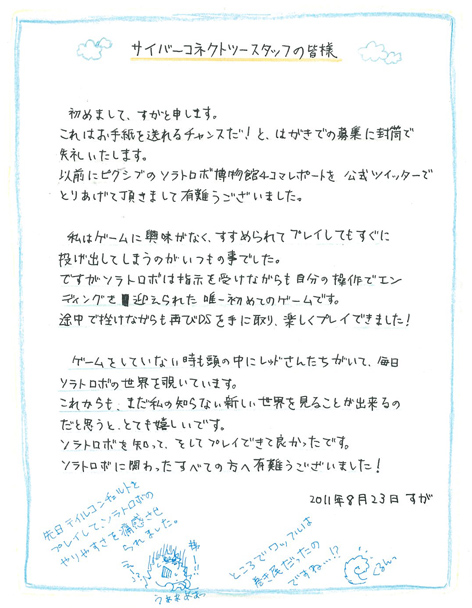 サイバーコネクトツースタッフの皆様
初めまして、すがと申します。
これはお手紙を送れるチャンスだ!と、はがきでの募集に封筒で
失礼いたします。
以前にピクシブのソラトロボ博物館4コマレポートを公式ツイッターで
とりあげて頂きまして有難うございました。
私はゲームに興味がなく、すすめられてプレイしてもすぐに
投げ出してしまうのがいつもの事でした。
ですがソラトロボは指示を受けながらも自分の操作でエン
ディングを迎えられた唯一初めてのゲームです。
途中で挫けながらも再びDSを手に取り、楽しくプレイできました!
ゲームをしていない時も頭の中にレッドさんたちがいて、毎日
ソラトロボの世界を覗いています。
これからも、まだ私の知らない新しい世界を見ることが出来るの
だと思うと、とても嬉しいです。
ソラトロボを知って、そしてプレイできて良かったです。
ソラトロボに関わったすべての方へ有難うございました!
2011年8月23日 すが
先日テイルコンチェルトを
プレイして、ソラトロボの
やりやすさを痛感させ
られました。
うぉぉぉぉ
ところでワッフルは
巻き尾だったの
ですね…!?
くるんっ